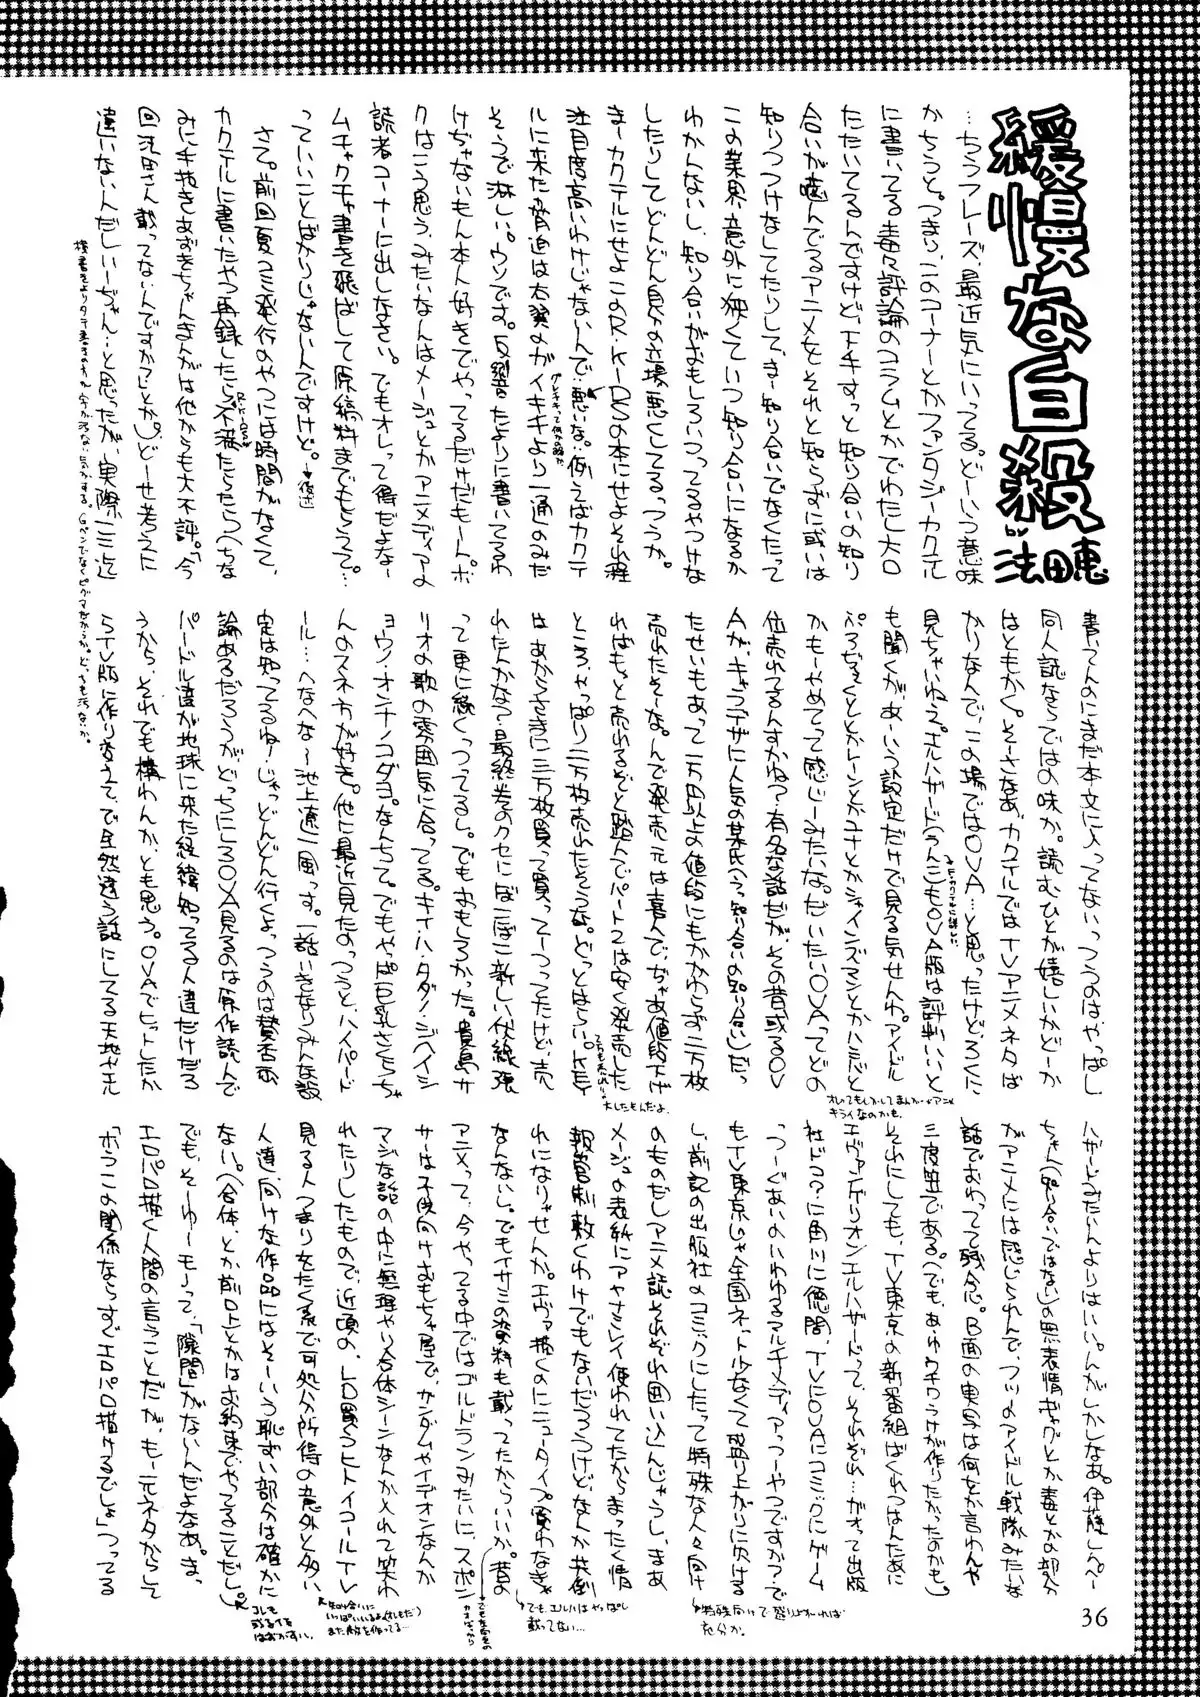 緩慢な自殺
by 法田恵
…ちうフレーズ、最近気にいってる。どーいう意味
かちうと。つまり、このコーナーとかファンタジーカクテル
に書いてる毒々評論のコラムとかでわたし大口
たたいてるんですけど、下手すっと知り合いの知り
合いが噛んでるアニメをそれと知らずに或いは
知りつつけなしてたりして、まー知り合いでなくたって
この業界、意外に狭くていつ知り合いになるか
わかんないし、知り合いがおもしろいってるやつけな
したりしてどんどん自分の立場悪くしてるっつうか。
まーカクテルにせよこのR・K・DSの本にせよそれ程
注目度高いわけじゃないんで…悪いな。例えばカクテ
ルに来た脅迫は右翼のガイキチより一通のみだ
そうで淋しい。ウソです。反響たよりに書いてるわ
けぢゃないもん本人好きでやってるだけだもーん。ボ
クはこう思う、みたいなんはメージュとかアニメディアの
読者コーナーに出しなさい。でもオレって得だよな…
ムチャクチャ書き飛ばして原稿料までもらって…
っていいことばかりじゃないんですけど。
さて。前回夏コミ発行のやつには時間がなくて、
カクテルに書いたやつ再録したら不満たらたら(ちな
みに手抜きあずきちゃんまんがは他からも大不評。「今
回法田さん載ってないんですか?」とか)どーせ考うに
違いないんだしいーぢゃん…と思ったが、実際一三近
書いてんのにまだ本文に入ってないっつうのは、やっぱし
同人誌ならではの味か。読むひとが嬉しいかどーか
はともかく。そーさなあ、カクテルではTVアニメネタば
かりなんで、この場ではOVA…と思ったけど、ろくに
見ちゃいねえ。エルハザード(うんこ)もOVA版は評判いいと
も聞くが、あーいう設定だけで見る気せんわ。アイドル
かもーやめてって感じーみたいな。だいたいOVAってどの
位売れてるんすかね?有名な話だが、その昔或るOV
Aが、キャラデザに人気の某氏(って知り合いの知り合い)だっ
たせいもあって一万円以上の値段にもかかわらず二万枚
売れたそーな。んで発売元は喜んで、ぢゃあ値段下げ
ればもっと売れるぞと踏んでパート2は安く発売した
ところ、やっぱり二万枚売れたとゆうな。どっとはらい。
れたんかな?最終巻のクセにぼこぼこ新しい伏線張
って更に続くっつってるし。でもおもしろかった。
リオの歌の雰囲気に合ってる。キイハ・ダダノ・ジャイシ
ヨウノ・オンナノコダヨ。なんちて。でもやっぱ巨乳さくらちゃ
んのスネ方が好き。他に最近見たのっつうと、ハイパード
ール…へなへな〜池上遼一風っす。一話いきなりみんな設
定は知ってるね!じゃっどんどん行くよっつうのは賛否両
論あるだろうがどっちにしろOVA見るのは原作読んで
パードル達が地球に来た経緯知ってる人達だけだろ
うから、それでも構わんか、とも思う。OVAでヒットしたか
らTV版に作り変えて、で全然違う話にしてる天地やエル
ハザードよりはいい。んがしかしなあ。伊藤しんぺー
ちゃん(知り合いではない)の黒表情ギャグとか毒とかの部分
がアニメには感じられんで、フツーのアイドル戦隊みたいな
話でおわってて残念。B面の実写は何をか言わんや
三度笠である。(でも、あーゆうウチワうけが作りたかったのかも。)
それにしても、TV東京の新番組ばくれつはんたあに
エヴァンゲリオン、エルハザードって、それぞれ…がオって出版
社どう?に角川に徳間、TVにOVAにコミックにゲーム
っつーぐあいのいわゆるマルチメディアっつーやつですか?で
もTV東京じゃ全国ネット少なくて盛り上がりに欠ける
し、前記の出版社のコミックにしたって特殊な人々向け
のものだしアニメ誌それぞれ囲い込んじゃうし、まあ
メージュの表紙にアヤナミレイ使われてたからまったく情
報管制敷くわけでもないだろうけど、なんか共倒
れになりゃせんか。エヴァ描くのにニュータイプ買わなきゃ
なんないし。でもイサミの資料も載ってたからいいか。昔の
アニメって、今やってる中ではゴルドランみたいに、スポン
サーは子供向けおもちゃ屋で、ガンダムやイデオンなんか
マジな話の中に無理やり合体シーンなんか入れて笑わ
れたりしたもので、近頃の、LD買うヒトイコールTV
見る人つまりをたく系で可処分所得の意外と多い
人達、向けな作品にはそーいう恥ずい部分は確かに
ない。(合体、とか前口上とかはお約束でやってることだし。)
でも、そーゆーモノって、「隙間」がないんだよなあ。ま、
エロパロ描く人間の言うことだが、もー元ネタからして
「ホラこの関係ならすぐエロパロ描けるでしょ」つってる
大したもんだよ。
オレってもしかしてまんがやアニメ
キライなのかも。
でも、エルハはやっぱし
載ってない…
特殊向けで盛りよれれば
充分か。
知り合いに
いっぱいいるよ(オレもだ)
また敵を作ってる…
コレも
或るイミ
はずかすい。
36